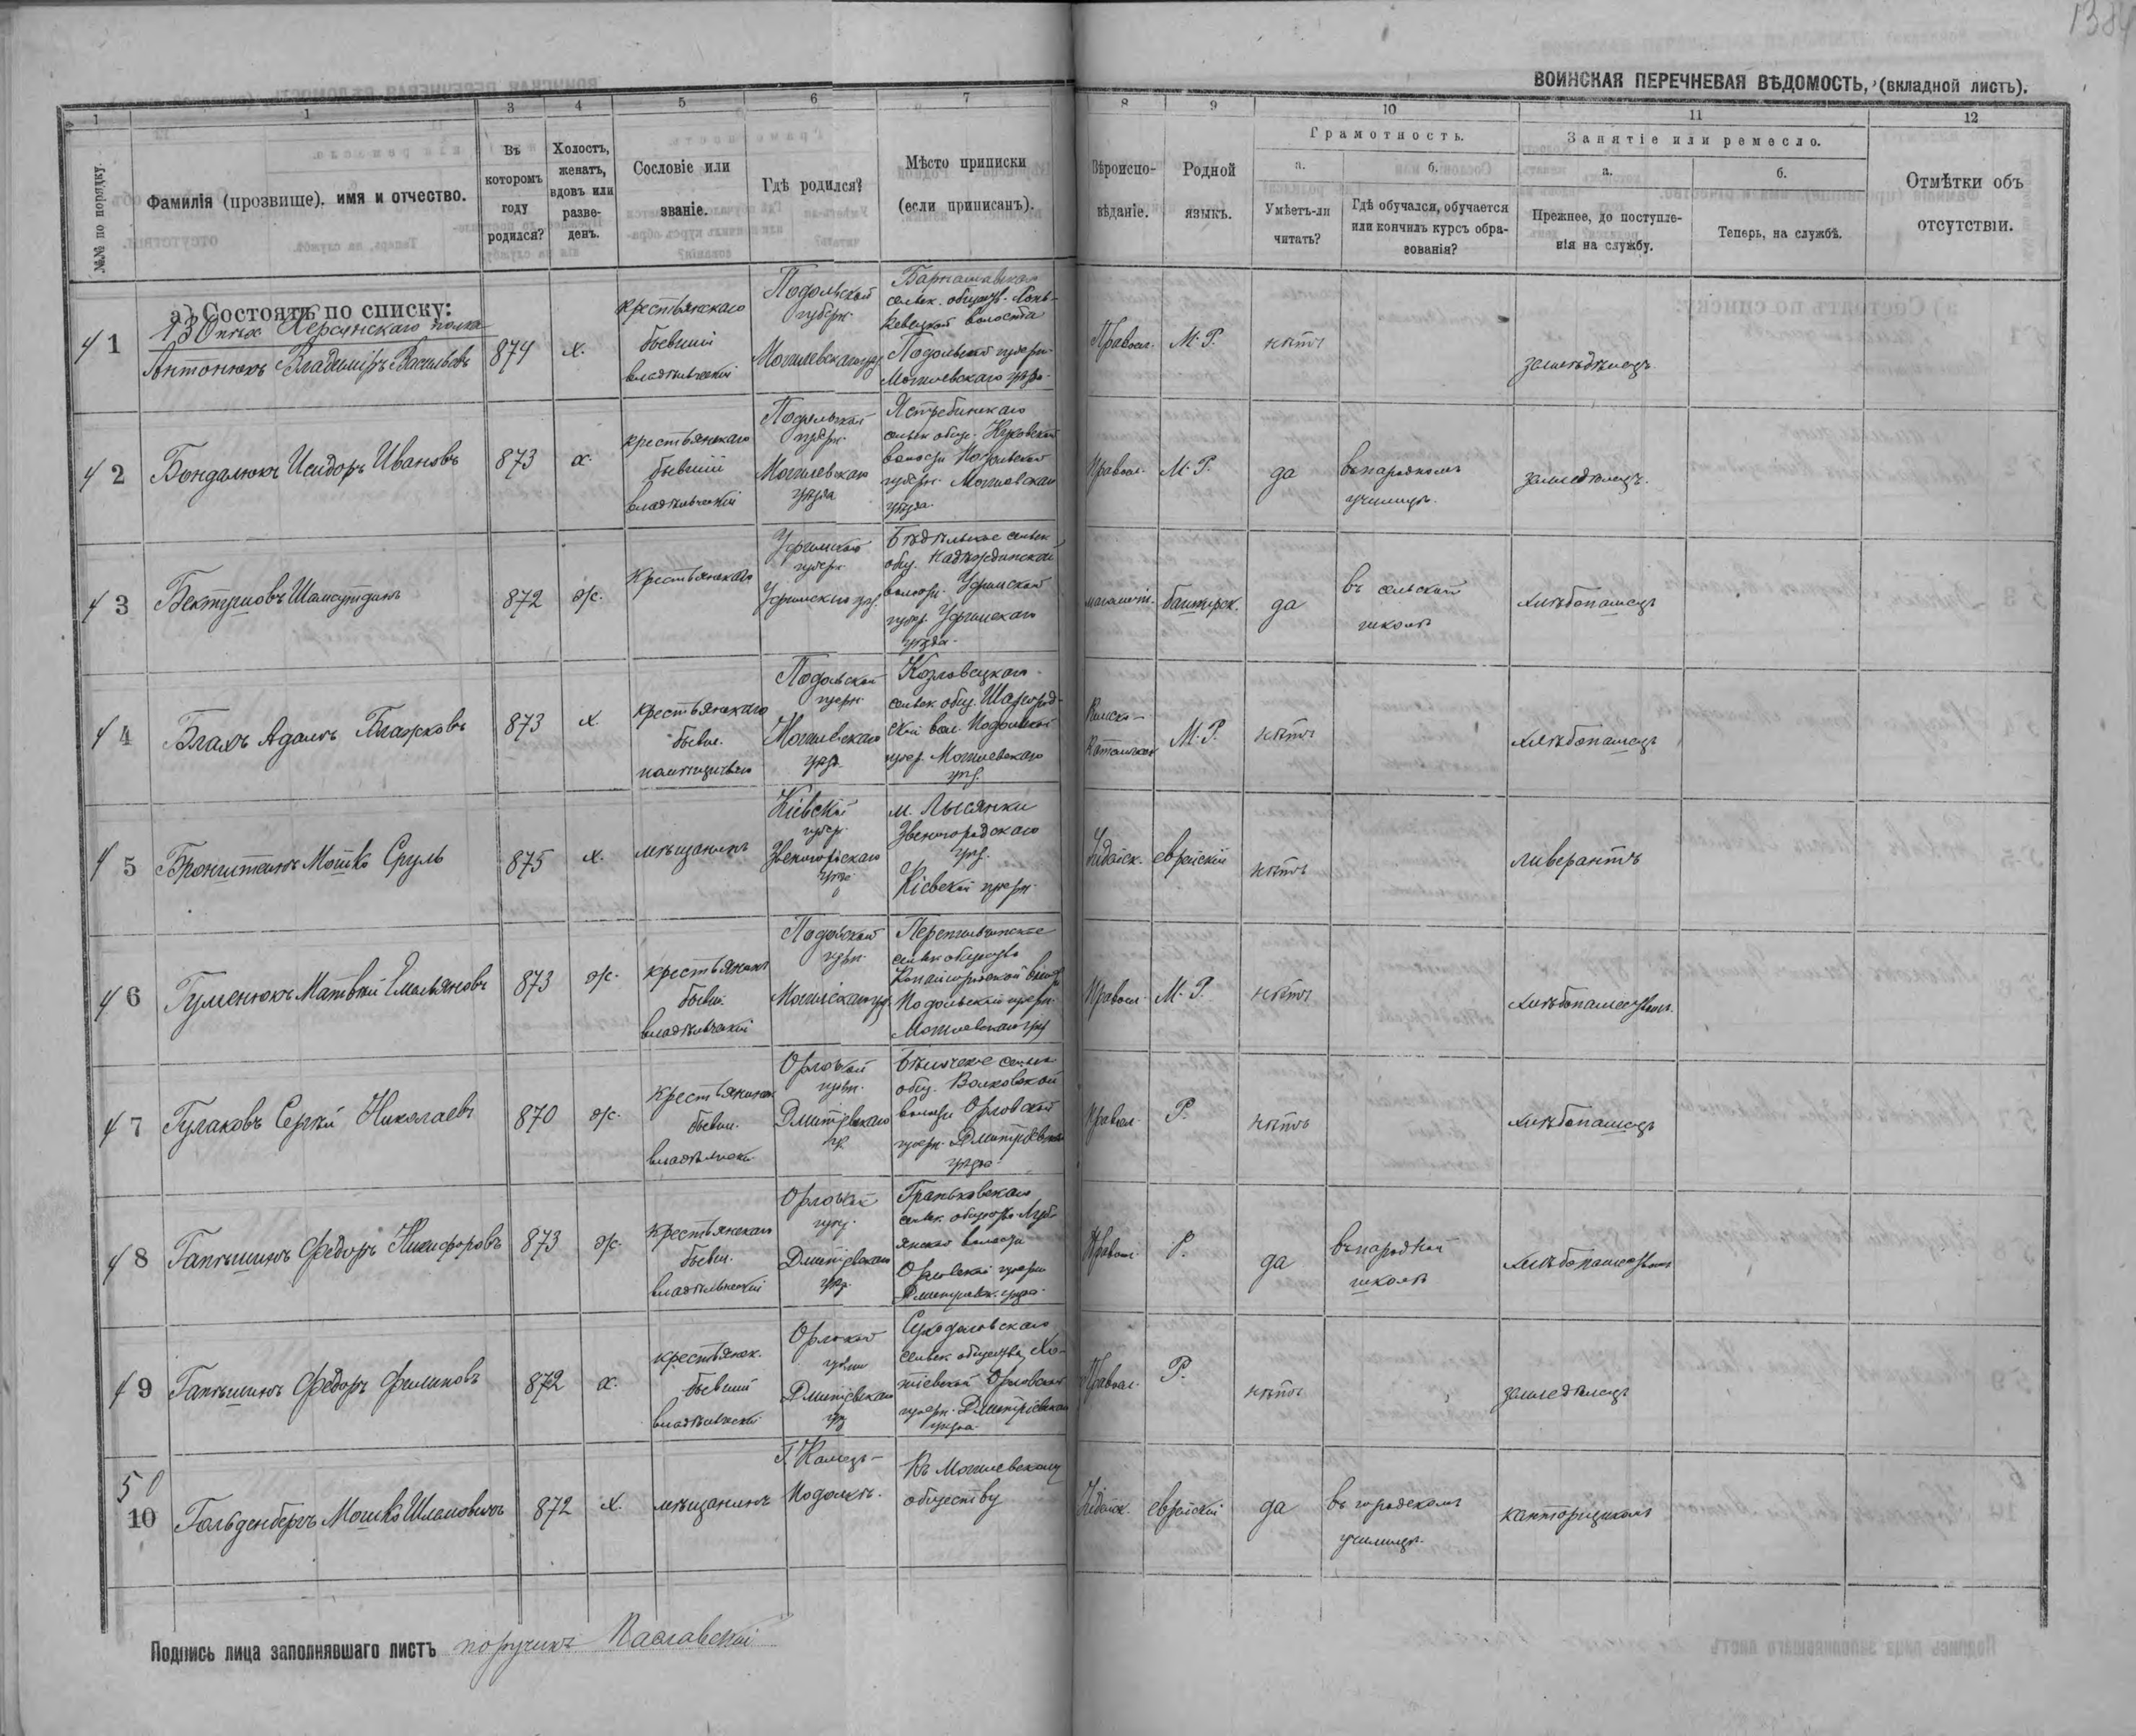 1384
ВОИНСКАЯ ПЕРЕЧНЕВАЯ ВѢДОМОСТЬ, (вкладной листъ).
1 1 3 4 5 6 7 8 9 10 11 12
№№ по порядку.
Фамилія (прозвище), имя и отчество.
Въ которомъ году родился?
Холостъ, женатъ, вдовъ или разведенъ.
Сословіе или званіе.
Гдѣ родился?
Мѣсто приписки (если приписанъ).
Вѣроисповѣданіе.
Родной языкъ.
Грамотность.
а. Умѣетъ-ли читать?
б. Гдѣ обучался, обучается или кончилъ курсъ образованія?
Занятіе или ремесло.
а. Прежнее, до поступленія на службу.
б. Теперь, на службѣ.
Отмѣтки объ отсутствіи.
а) Состоятъ по списку:
130 пѣх. Херсонскаго полка
41 Антонюкъ Владиміръ Васильевъ 874 х. крестьянскаго бывшій владѣльческій Подольской губерн. Могилевскаго уѣз. сельск. волости Подольской губерн. Могилевскаго уѣзд. Правосл. М. Р. нѣтъ земледѣлецъ
42 Бондалюкъ Исидоръ Ивановъ 873 х. крестьянскаго бывшій владѣльческій Подольской губерн. Могилевскаго уѣзда Ястребинскаго сельск. общ. волости Подольской губерн. Могилевскаго уѣзда. Правосл. М. Р. да въ народномъ училищѣ. земледѣлецъ.
43 Бектуиовъ Шамсутдинъ 872 ж. Крестьянскаго Уфимской губерн. Уфимскаго уѣз. сельск. общ. Надеждинской волости. Уфимской губ. Уфимскаго уѣзда. магомет. башкирск. да въ сельской школѣ хлѣбопашецъ
44 Блахъ Адамъ 873 х крестьянскаго бывш. помѣщичьяго Подольской губерн. Могилевскаго уѣзд. Козловецкаго сельск. общ. Шаргородской вол. Подольской губер. Могилевскаго уѣз. Римско-Католическ. М. Р. нѣтъ хлѣбопашецъ
45 Бронштейнъ Мошко Сруль 875 х. мѣщанинъ Кіевской губер. Звенигородскаго уѣзд. м. Лысянки Звенигородскаго уѣз. Кіевской губерн. Іудейск. еврейскій нѣтъ ливерантъ
46 Гуменюкъ Матвѣй Емельяновъ 873 ж. крестьянинъ бывш. владѣльческій Подольской губерн. Могилевскаго уѣз. сельск. общество Копайгородской волост. Подольской губерн. Могилевскаго уѣз. Правосл. М. Р. нѣтъ хлѣбопашествомъ.
47 Гулаковъ Сергѣй Николаевъ 870 ж. крестьянинъ бывш. владѣльческ. Орловской губерн. Дмитріевскаго уѣз. сельск. общ. Волковской волости Орловской губерн. Дмитріевскаго уѣзда. Правосл. Р. нѣтъ хлѣбопашецъ
48 Гапѣшинъ Федоръ Никифоровъ 873 ж. крестьянскаго бывш. владѣльческій Орловской губ. Дмитріевскаго уѣзд. сельск. общество волости Орловской губерн. Дмитріевск. уѣзда. Правосл. Р. да въ народной школѣ хлѣбопашествомъ
49 Гапѣшинъ Федоръ Филиповъ 872 х. крестьянск. бывшій владѣльческій Орловской губерн. Дмитріевскаго уѣз. Суходоловскаго сельск. общества, Орловской губерн. Дмитріевскаго уѣзда Правосл. Р. нѣтъ земледѣлецъ
50 10 Гольденбергъ Мошко Шлемовичъ 872 х. мѣщанинъ Г. Каменц-Подольск. Къ Могилевскому обществу Іудейск. еврейскій да въ городскомъ училищѣ. канторщикомъ
Подпись лица заполнявшаго листъ поручикъ